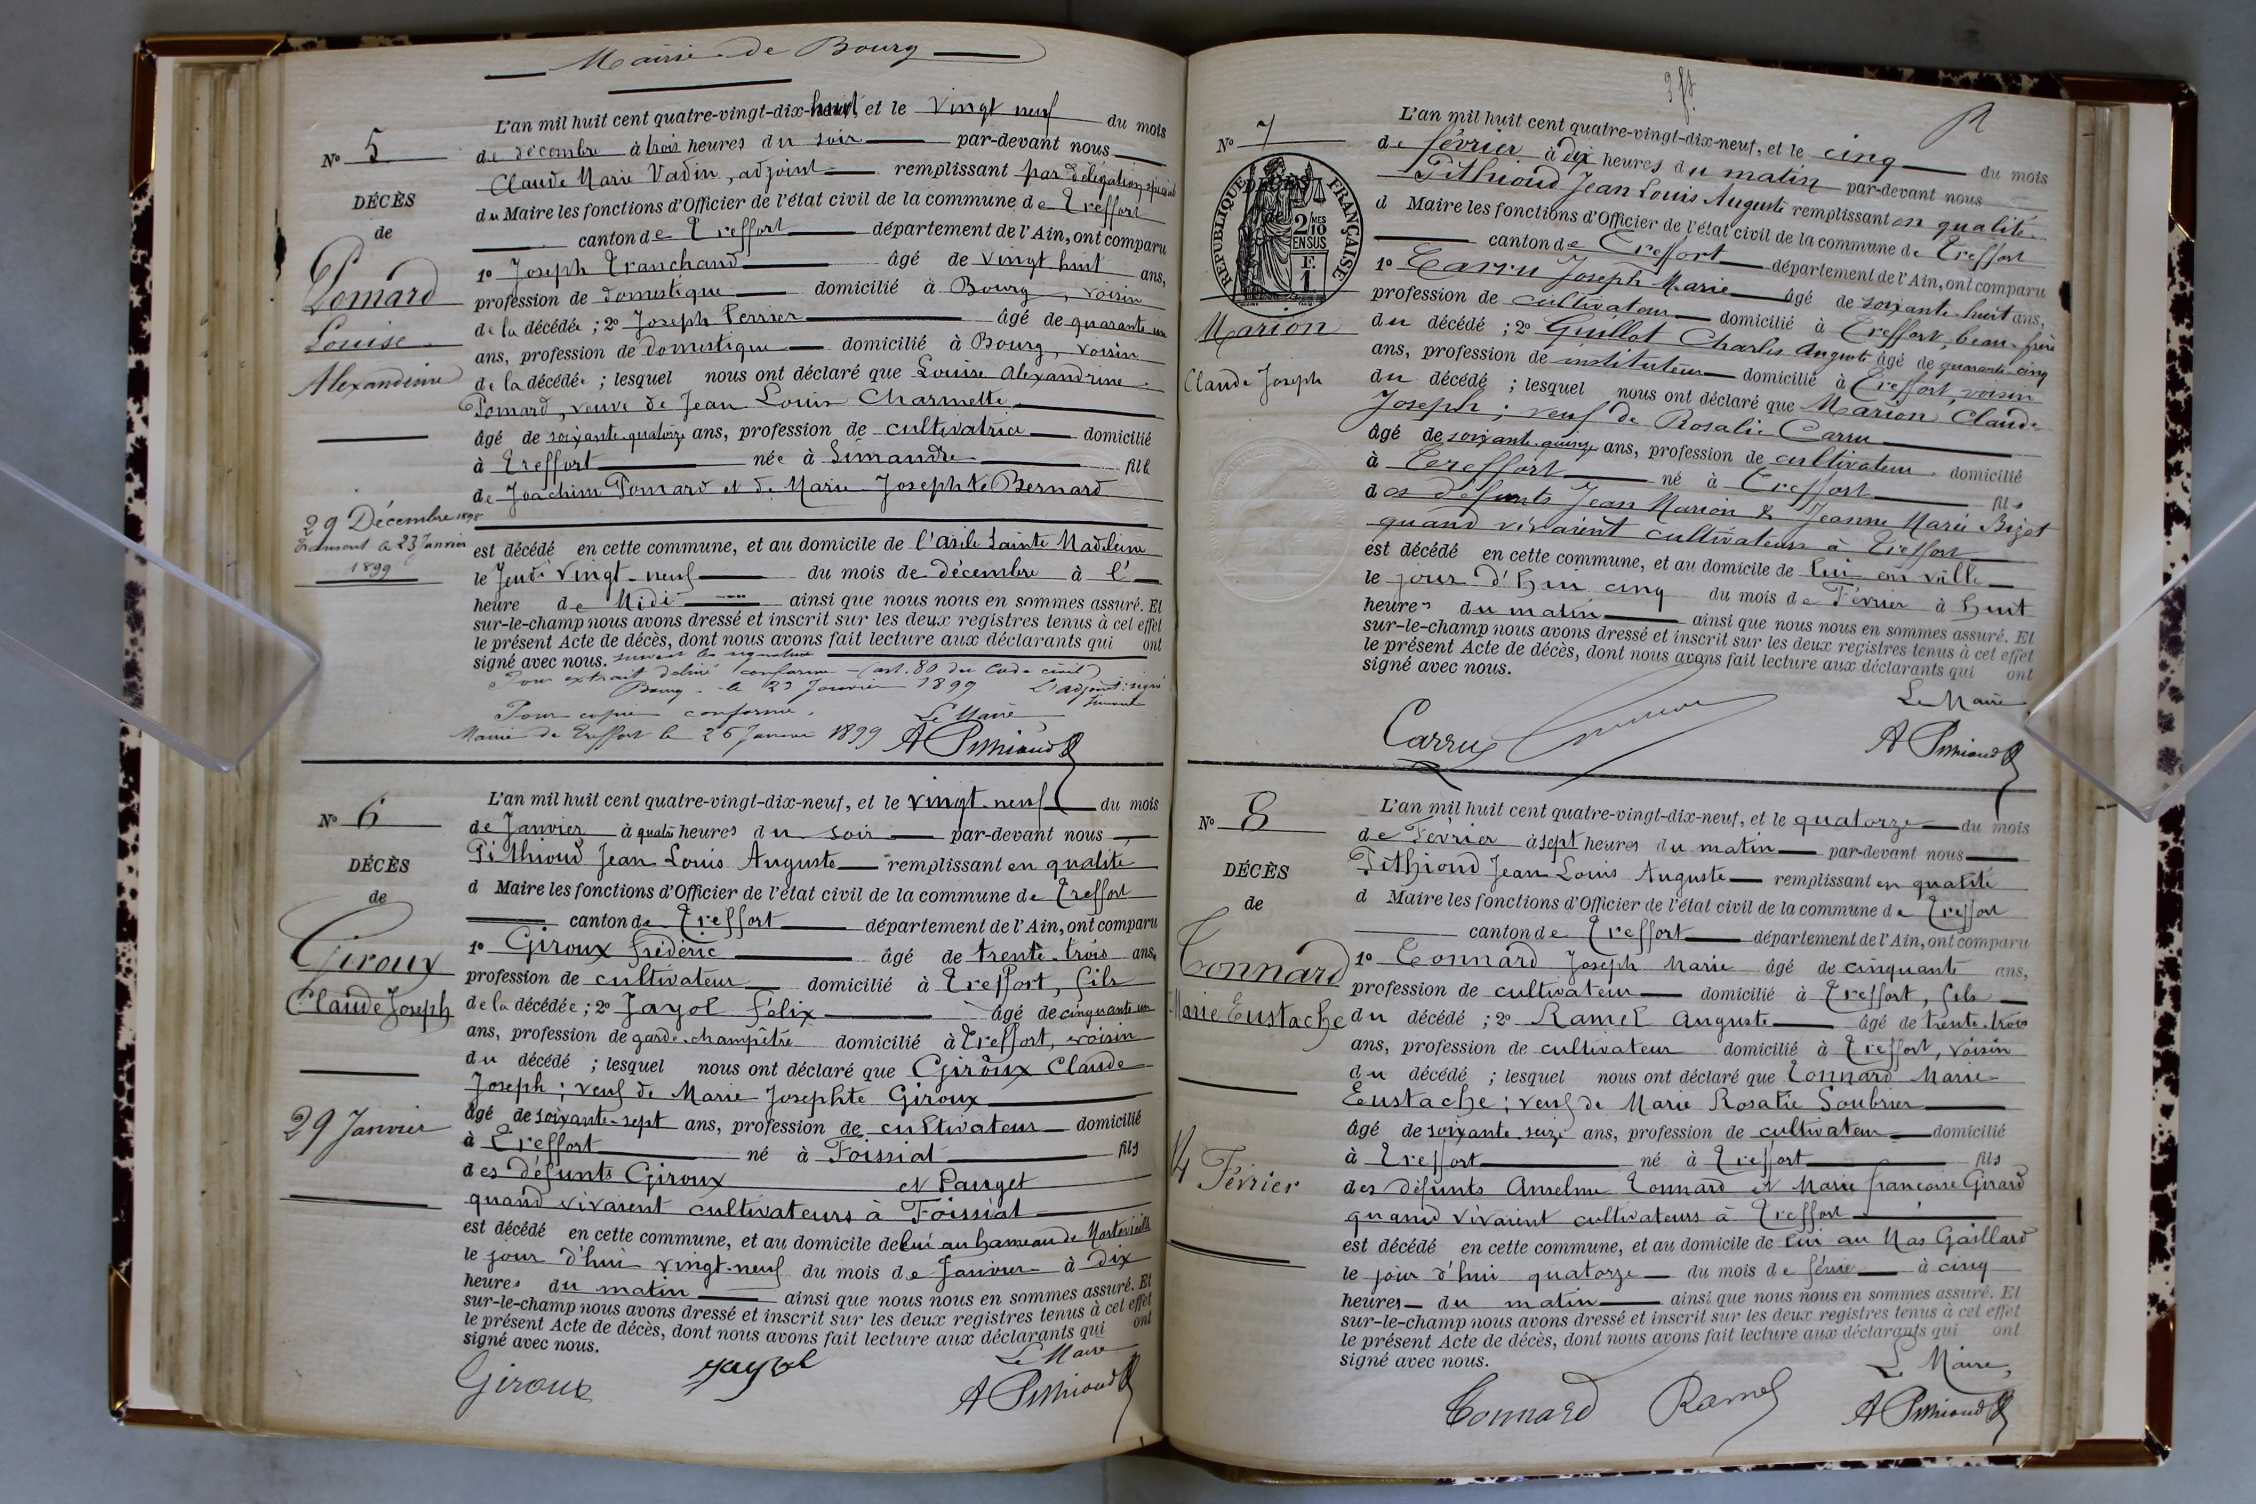 Mairie de Bourg
L'an mil huit cent quatre-vingt-dix-huit, et le vingt neuf du mois
No 5
de décembre à trois heures du soir par-devant nous
Claude Marie Vadin, adjoint remplissant par délégation spéciale
DÉCÈS
du Maire les fonctions d'Officier de l'état civil de la commune de Treffort
de
canton de Treffort département de l'Ain, ont comparu
1o Joseph Tranchand âgé de vingt huit ans,
Pomard
profession de domestique domicilié à Bourg, voisin
de la décédée ; 2o Joseph Perrier âgé de quarante un
Louise
ans, profession de domestique domicilié à Bourg, voisin
Alexandrine
de la décédée ; lesquel nous ont déclaré que Louise Alexandrine
Pomard, veuve de Jean Louis Charmette
âgé de soixante quatorze ans, profession de cultivatrice domicilié
à Treffort née à Simandre fille
de Joachim Pomard et de Marie Josephte Bernard
29 Décembre 1898
Transcrit le 23 Janvier
1899
est décédé en cette commune, et au domicile de l'asile Sainte Madeleine
le Jeudi vingt-neuf du mois de décembre à l'
heure de Midi ainsi que nous nous en sommes assuré. Et
sur-le-champ nous avons dressé et inscrit sur les deux registres tenus à cet effet
le présent Acte de décès, dont nous avons fait lecture aux déclarants qui ont
signé avec nous. suivent les signatures
Pour extrait délivré conforme (art. 80 du Code civil)
Bourg le 23 Janvier 1899 L'adjoint: signé
Pour copie conforme.
Mairie de Treffort le 26 Janvier 1899 Le Maire
A Pithioud
No 6
L'an mil huit cent quatre-vingt-dix-neuf, et le vingt-neuf du mois
de Janvier à quatre heures du soir par-devant nous
Pithioud Jean Louis Auguste remplissant en qualité
DÉCÈS
d Maire les fonctions d'Officier de l'état civil de la commune de Treffort
de
canton de Treffort département de l'Ain, ont comparu
1o Giroux Frédéric âgé de trente-trois ans,
Giroux
profession de cultivateur domicilié à Treffort, fils
Claude Joseph
de la décédée ; 2o Jayol Félix âgé de cinquante un
ans, profession de garde-champêtre domicilié à Treffort, voisin
du décédé ; lesquel nous ont déclaré que Giroux Claude
Joseph ; veuf de Marie Josephte Giroux
âgé de soixante-sept ans, profession de cultivateur domicilié
29 Janvier
à Treffort né à Foissiat fils
des défunts Giroux et Pauget
quand vivaient cultivateurs à Foissiat
est décédé en cette commune, et au domicile de lui au hameau de Montevieille
le jour d'hui vingt-neuf du mois de Janvier à dix
heures du matin ainsi que nous nous en sommes assuré. Et
sur-le-champ nous avons dressé et inscrit sur les deux registres tenus à cet effet
le présent Acte de décès, dont nous avons fait lecture aux déclarants qui ont
signé avec nous.
Le Maire
Giroux Jayol A Pithioud
No 7
L'an mil huit cent quatre-vingt-dix-neuf, et le cinq du mois
de février à dix heures du matin par-devant nous
Pithioud Jean Louis Auguste remplissant en qualité
DÉCÈS
RÉPUBLIQUE FRANÇAISE
2/10 MES
EN SUS
F.
1
d Maire les fonctions d'Officier de l'état civil de la commune de Treffort
canton de Treffort département de l'Ain, ont comparu
1o Carru Joseph Marie âgé de soixante-huit ans,
profession de cultivateur domicilié à Treffort, beau-frère
Marion
du décédé ; 2o Guillot Charles Auguste âgé de quarante-cinq
ans, profession de instituteur domicilié à Treffort, voisin
Claude Joseph
du décédé ; lesquel nous ont déclaré que Marion Claude
Joseph ; veuf de Rosalie Carru
âgé de soixante-quinze ans, profession de cultivateur domicilié
à Treffort né à Treffort fils
des défunts Jean Marion & Jeanne Marie Bizot
quand vivaient cultivateurs à Treffort
est décédé en cette commune, et au domicile de lui en ville
le jour d'hui cinq du mois de Février à huit
heures du matin ainsi que nous nous en sommes assuré. Et
sur-le-champ nous avons dressé et inscrit sur les deux registres tenus à cet effet
le présent Acte de décès, dont nous avons fait lecture aux déclarants qui ont
signé avec nous.
Le Maire
Carru A Pithioud
No 8
L'an mil huit cent quatre-vingt-dix-neuf, et le quatorze du mois
de Février à sept heures du matin par-devant nous
Pithioud Jean Louis Auguste remplissant en qualité
DÉCÈS
d Maire les fonctions d'Officier de l'état civil de la commune de Treffort
de
canton de Treffort département de l'Ain, ont comparu
1o Tonnard Joseph Marie âgé de cinquante ans,
Tonnard
profession de cultivateur domicilié à Treffort, fils
Marie Eustache
du décédé ; 2o Ramel Auguste âgé de trente-trois
ans, profession de cultivateur domicilié à Treffort, voisin
du décédé ; lesquel nous ont déclaré que Tonnard Marie
Eustache ; veuf de Marie Rosalie Soubrier
âgé de soixante-seize ans, profession de cultivateur domicilié
14 Février
à Treffort né à Treffort fils
des défunts Anselme Tonnard et Marie françoise Girard
quand vivaient cultivateurs à Treffort
est décédé en cette commune, et au domicile de lui au Mas Gaillard
le jour d'hui quatorze du mois de février à cinq
heures du matin ainsi que nous nous en sommes assuré. Et
sur-le-champ nous avons dressé et inscrit sur les deux registres tenus à cet effet
le présent Acte de décès, dont nous avons fait lecture aux déclarants qui ont
signé avec nous.
Le Maire,
Tonnard Ramel A Pithioud